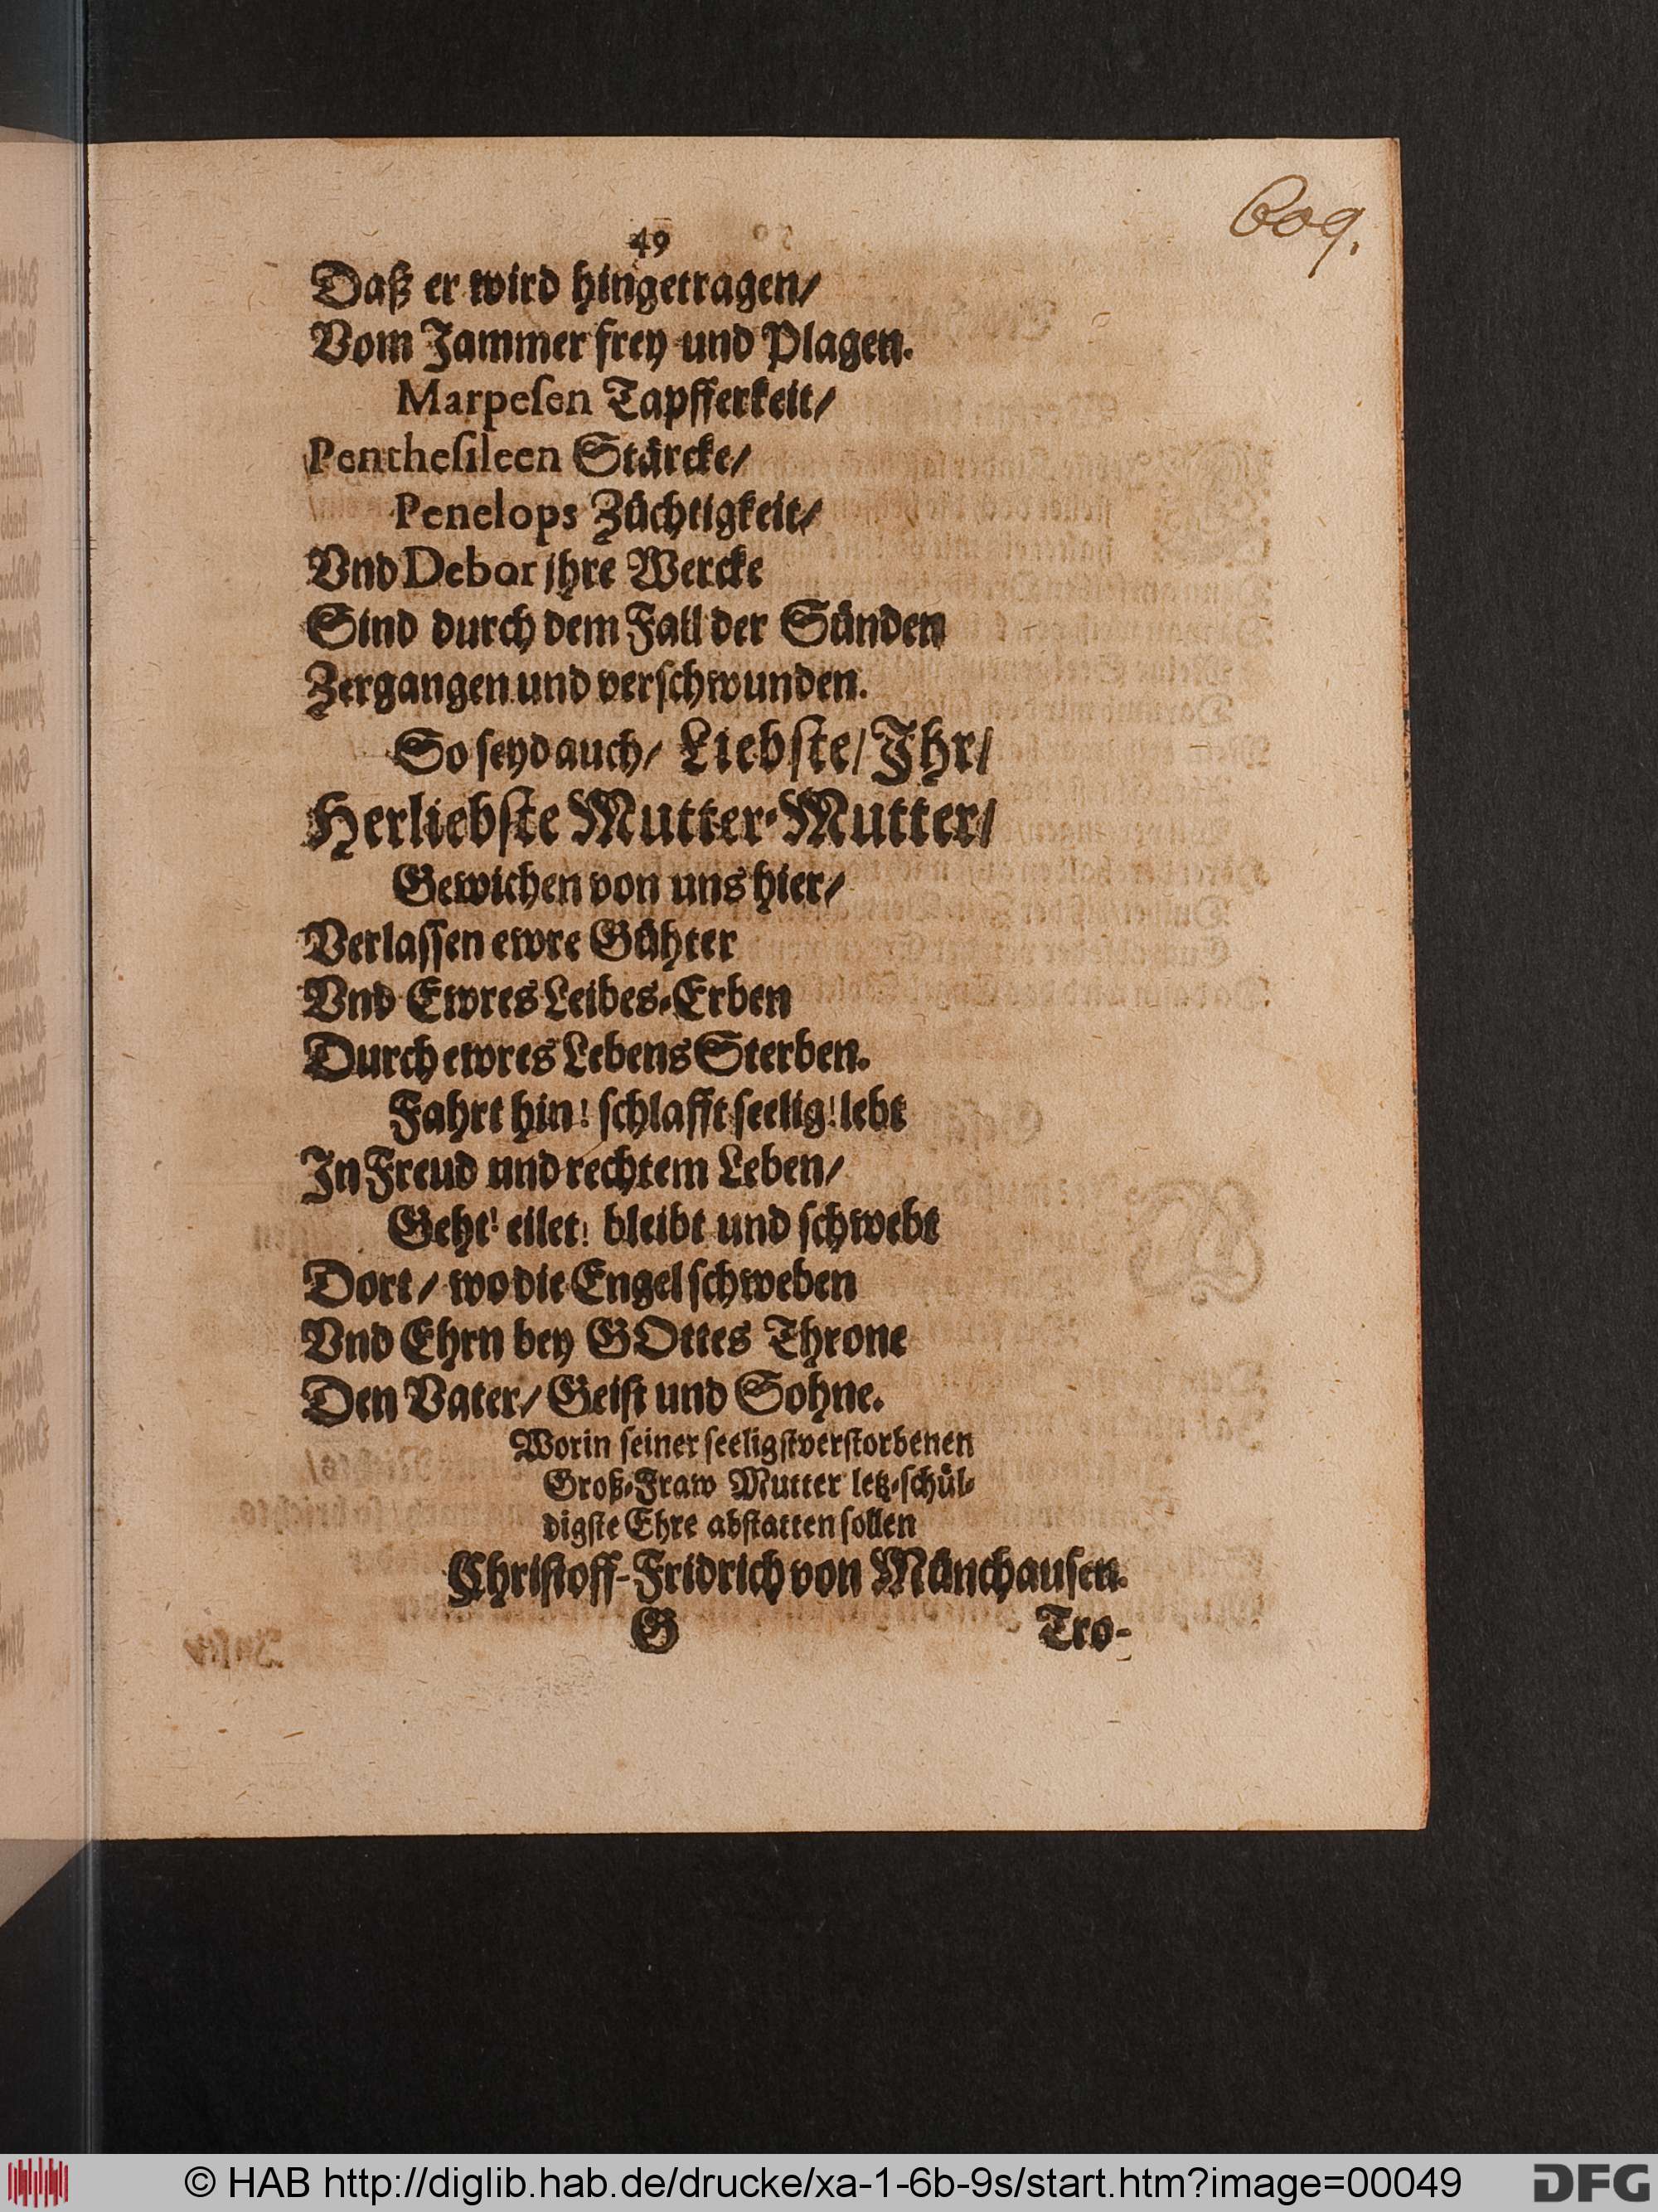 609.
49
Daß er wird hingetragen/
Vom Jammer frey und Plagen.
Marpeſen Tapfferkeit/
Pentheſileen Stärcke/
Penelops Züchtigkeit/
Vnd Debor jhre Wercke
Sind durch dem Fall der Sünden
Zergangen und verſchwunden.
So ſeyd auch/ Liebſte/ Jhr/
Herliebſte Mutter-Mutter/
Gewichen von uns hier/
Verlaſſen ewre Gühter
Vnd Ewres Leibes-Erben
Durch ewres Lebens Sterben.
Fahrt hin! ſchlafft ſeelig! lebt
Jn Freud und rechtem Leben/
Geht! eilet! bleibt und ſchwebt
Dort/ wo die Engel ſchweben
Vnd Ehrn bey GOttes Throne
Den Vater/ Geiſt und Sohne.
Worin ſeiner ſeeligſtverſtorbenen
Groß-Fraw Mutter letz-ſchül-
digſte Ehre abſtatten ſollen
Chriſtoff-Fridrich von Münchauſen.
G Tro-
© HAB http://diglib.hab.de/drucke/xa-1-6b-9s/start.htm?image=00049 DFG